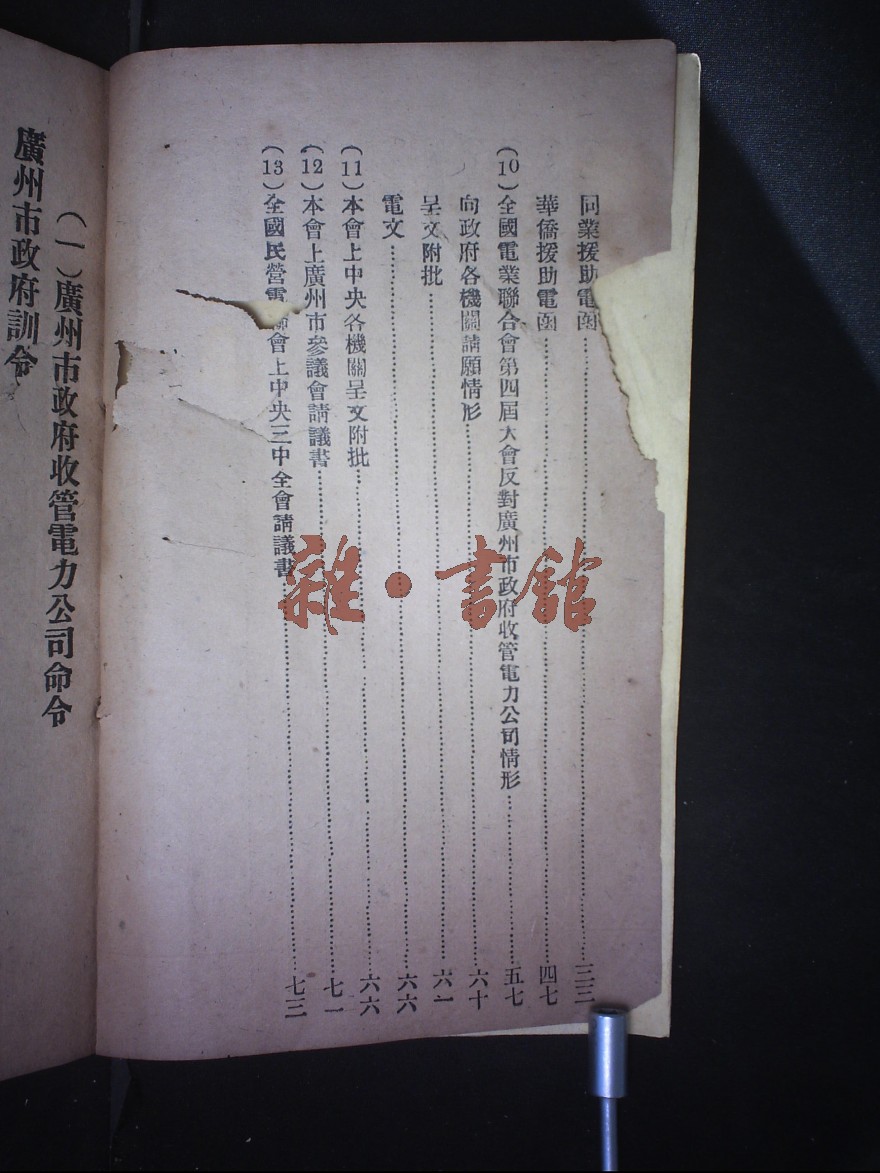 同業援助電函……三三
華僑援助電函……四七
(10)全國電業聯合會第四屆大會反對廣州市政府收管電力公司情形……五七
向政府各機關請願情形……六十
呈文附批……六一
電文……六六
(11)本會上中央各機關呈文附批……六六
(12)本會上廣州市參議會請議書……七一
(13)全國民營電聯會上中央三中全會請議書……七三
(一)廣州市政府收管電力公司命令
廣州市政府訓令
雜·書館